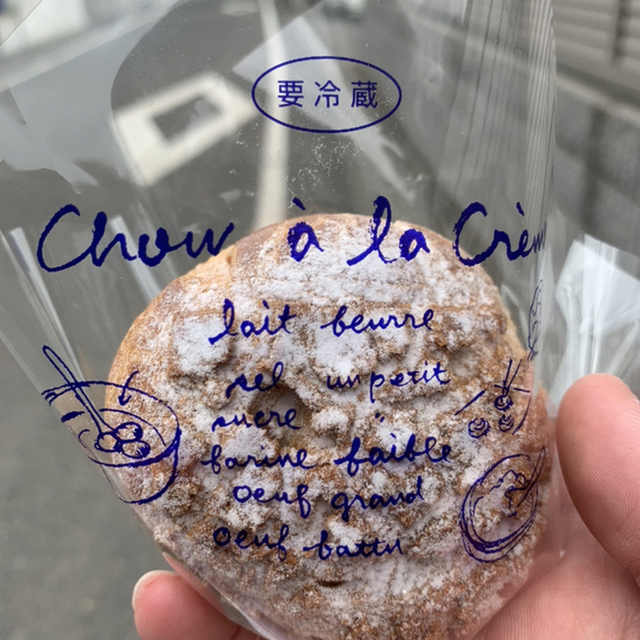 要冷蔵
Chow à la Crème
lait beurre
sel un petit
sucre
farine faible
oeuf grand
oeuf battu